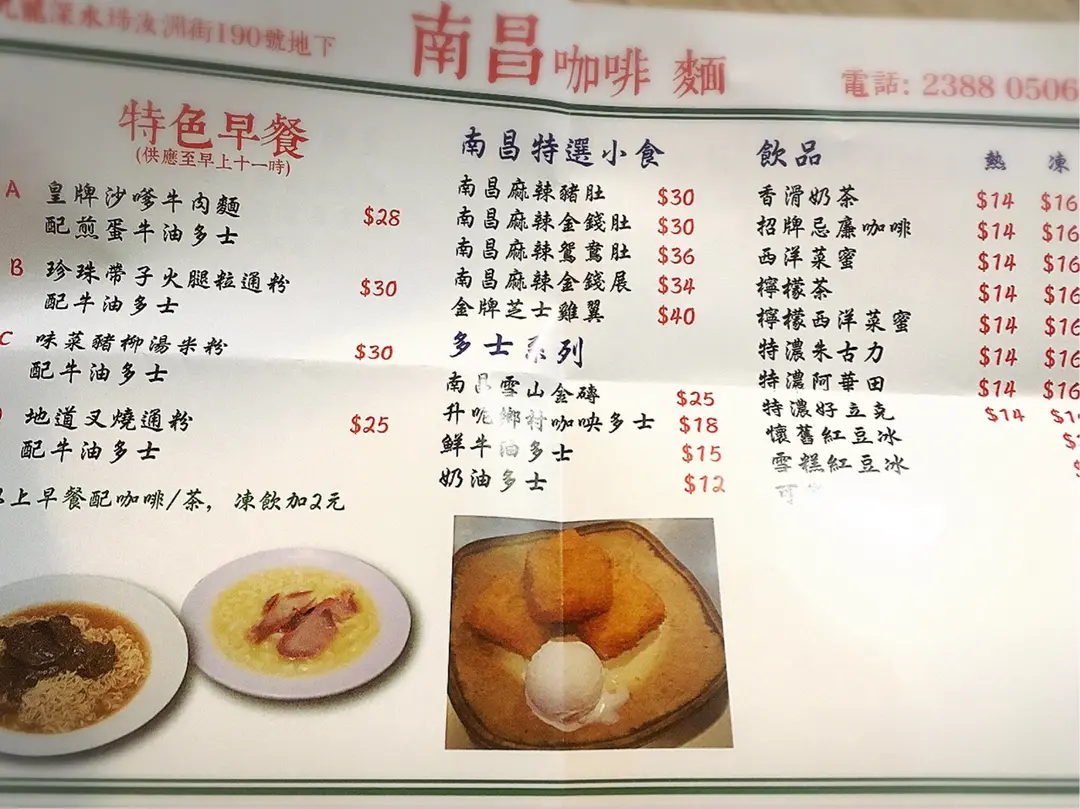 九龍深水埗汝洲街190號地下
南昌咖啡 麵
電話: 2388 0506
特色早餐
(供應至早上十一時)
A 皇牌沙嗲牛肉麵
配煎蛋牛油多士 $28
B 珍珠帶子火腿粒通粉
配牛油多士 $30
C 味菜豬柳湯米粉
配牛油多士 $30
地道叉燒通粉
配牛油多士 $25
上早餐配咖啡/茶, 凍飲加2元
南昌特選小食
南昌麻辣豬肚 $30
南昌麻辣金錢肚 $30
南昌麻辣鴛鴦肚 $36
南昌麻辣金錢展 $34
金牌芝士雞翼 $40
多士系列
南昌雪山金磚 $25
升呢鄉村咖央多士 $18
鮮牛油多士 $15
奶油多士 $12
飲品 熱 凍
香滑奶茶 $14 $16
招牌忌廉咖啡 $14 $16
西洋菜蜜 $14 $16
檸檬茶 $14 $16
檸檬西洋菜蜜 $14 $16
特濃朱古力 $14 $16
特濃阿華田 $14 $16
特濃好立克 $14
懷舊紅豆冰
雪糕紅豆冰
可